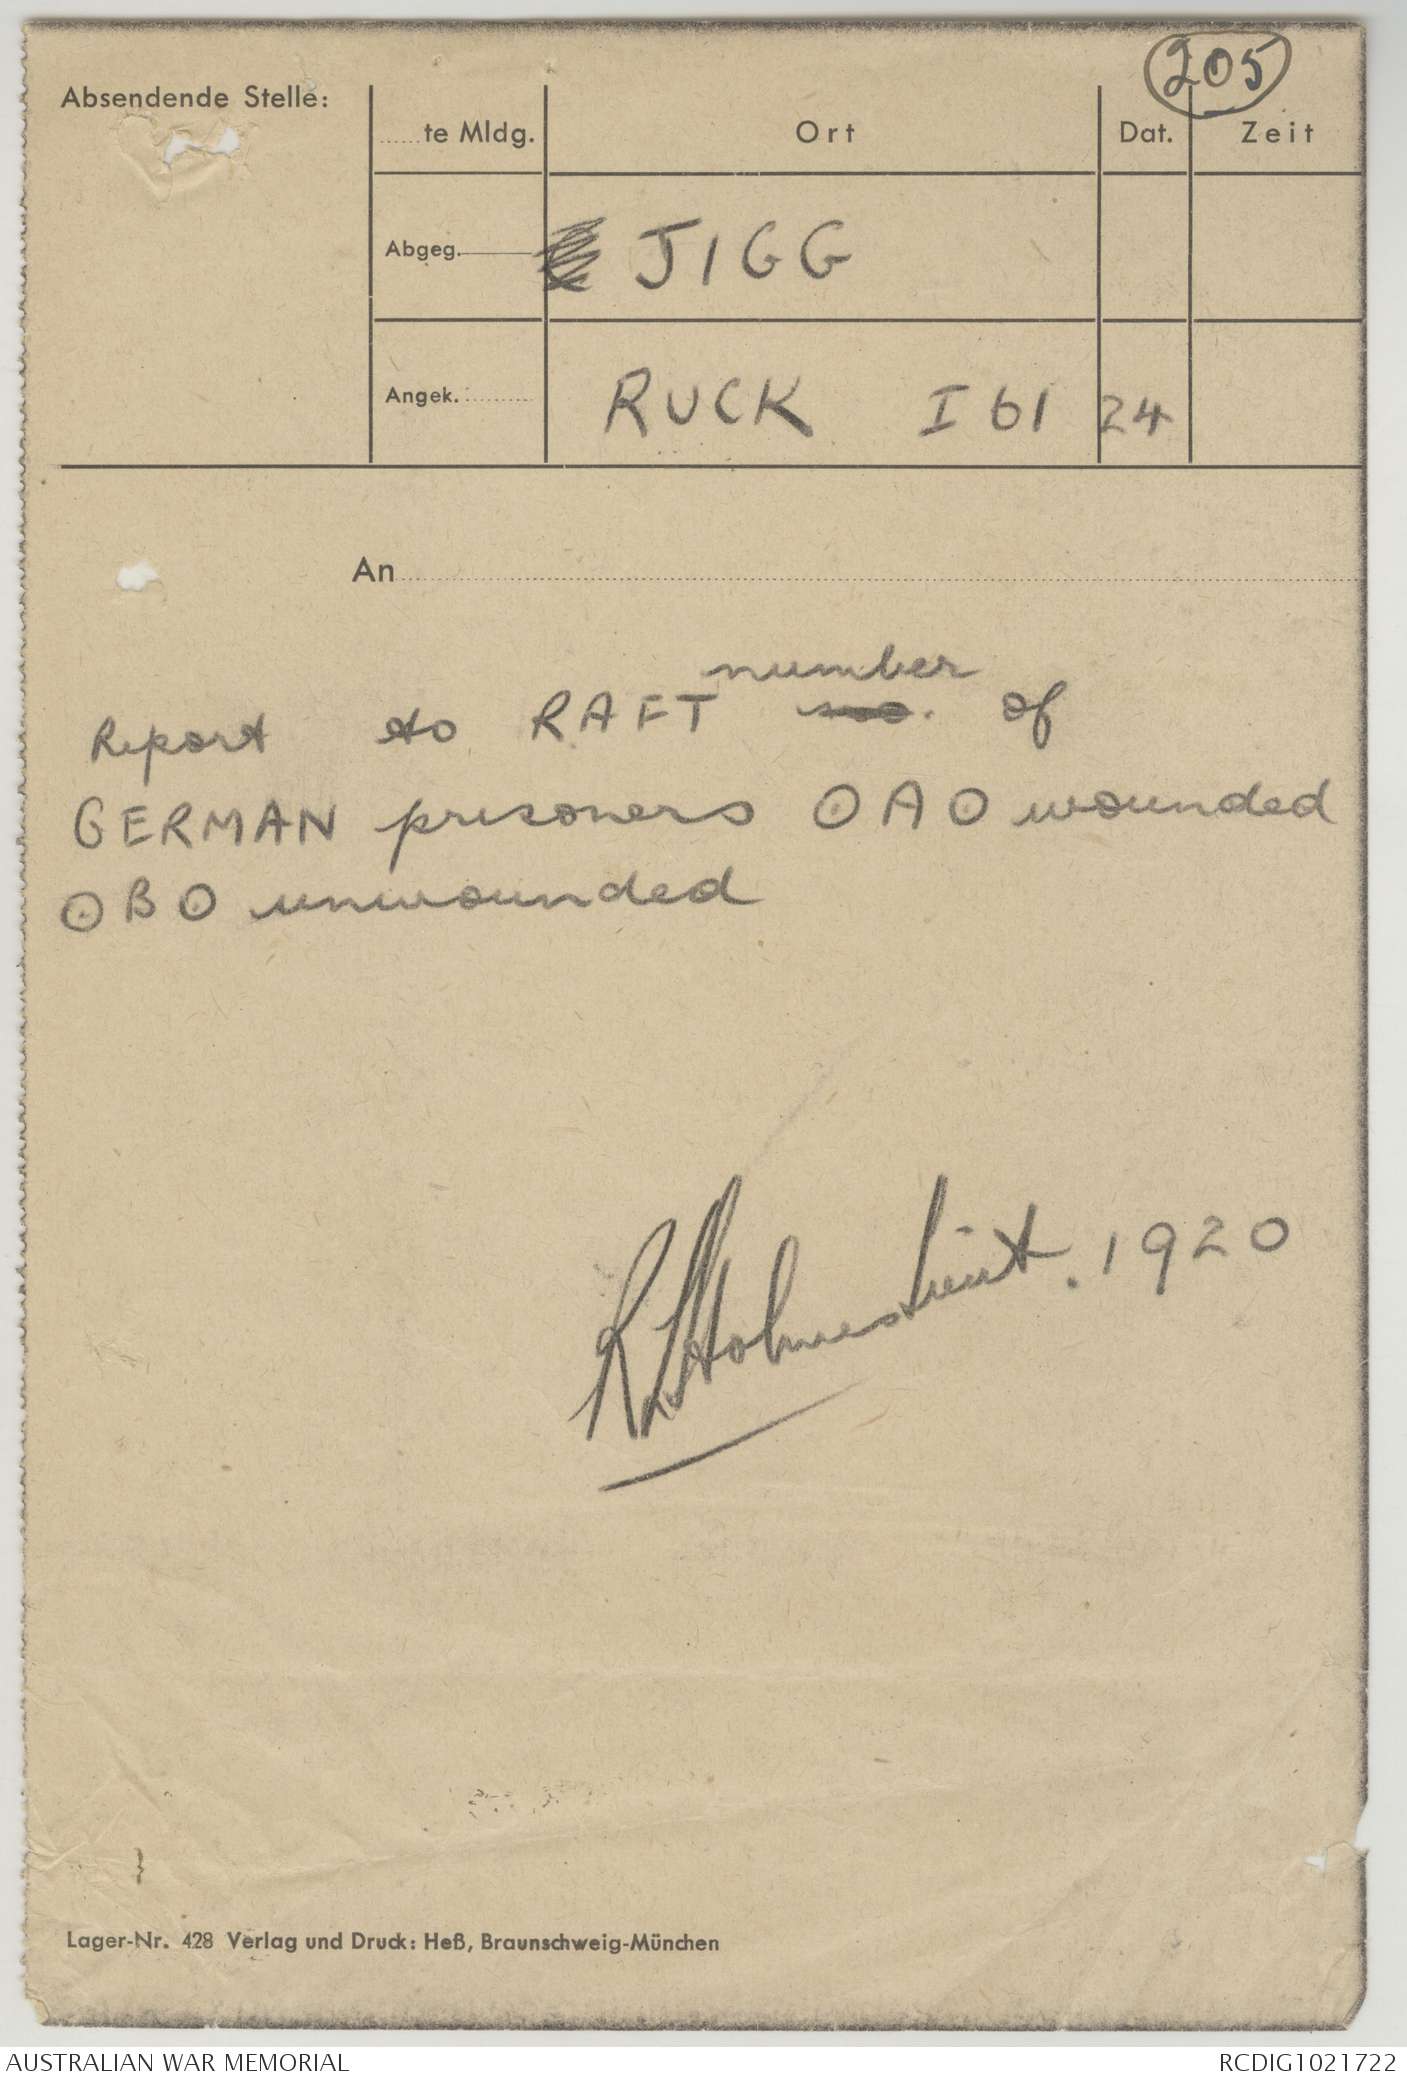 205
Absendende Stelle:
......te Mldg. Ort Dat. Zeit
Abgeg. JIGG
Angek. RUCK I 61 24
An
number
Report to RAFT no. of
GERMAN prisoners ⊙ A ⊙ wounded
⊙ B ⊙ unwounded
R L Holmes Lieut. 1920
Lager-Nr. 428 Verlag und Druck: Heß, Braunschweig-München
AUSTRALIAN WAR MEMORIAL RCDIG1021722